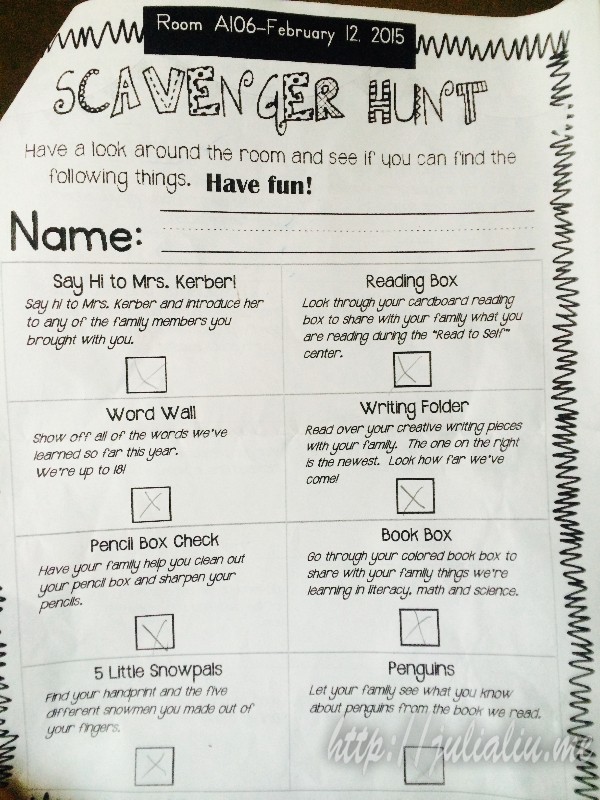 Room A106-February 12, 2015
SCAVENGER HUNT
Have a look around the room and see if you can find the
following things. Have fun!
Name:
Say Hi to Mrs. Kerber!
Say hi to Mrs. Kerber and introduce her
to any of the family members you
brought with you.
Reading Box
Look through your cardboard reading
box to share with your family what you
are reading during the "Read to Self"
center.
Word Wall
Show off all of the words we've
learned so far this year.
We're up to 18!
Writing Folder
Read over your creative writing pieces
with your family. The one on the right
is the newest. Look how far we've
come!
Pencil Box Check
Have your family help you clean out
your pencil box and sharpen your
pencils.
Book Box
Go through your colored book box to
share with your family things we're
learning in literacy, math and science.
5 Little Snowpals
Find your handprint and the five
different snowmen you made out of
your fingers.
Penguins
Let your family see what you know
about penguins from the book we read.
http://julialiu.me